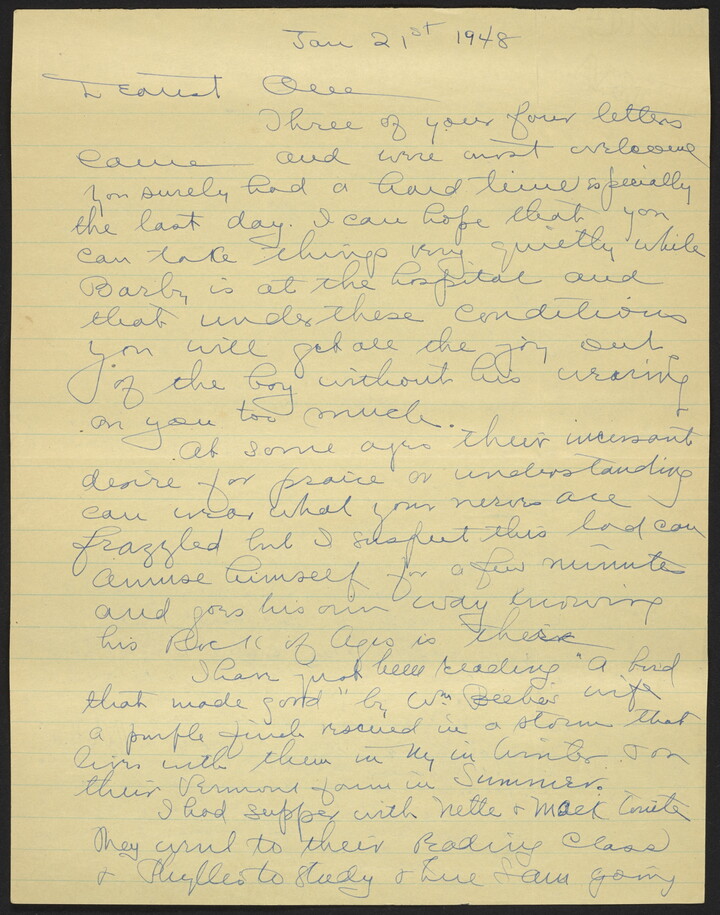 Jan 21st 1948
Dearest One
Three of your four letters
came and were most welcome
You surely had a hard time especially
the last day. I can hope that you
can take things very quietly while
Barby is at the hospital and
that under these conditions
you will get all the joy out
of the boy without his wearing
on you too much.
At some ages their incessant
desire for praise or understanding
can wear what your nerves are
frazzled but I suspect this lad can
amuse himself for a few minutes
and goes his own way knowing
his Rock of Ages is there
I have just been reading "A bird
that made good" by Wm Beebe's wife
a purple finch rescued in a storm that
lives with them in NY in winter & on
their Vermont farm in Summer.
I had supper with Nette & Mack
They went to their Reading Class
& Phyllis to Study & I am going